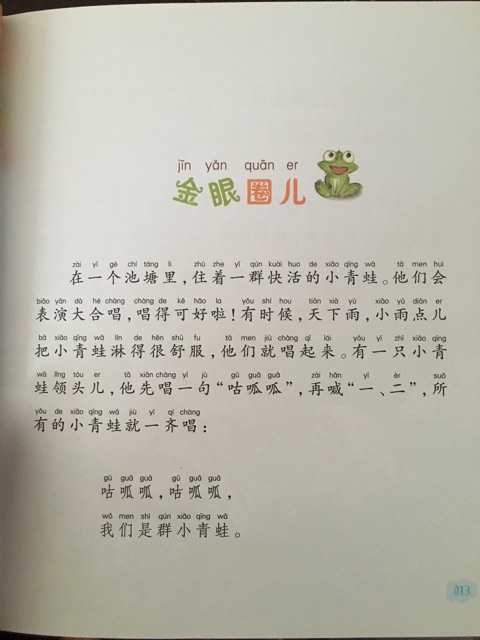 jīn yǎn quān er
金眼圈儿
zài yī gè chí táng lǐ zhù zhe yī qún kuài huo de xiǎo qīng wā tā men huì
在一个池塘里，住着一群快活的小青蛙。他们会
biǎo yǎn dà hé chàng chàng de kě hǎo la yǒu shí hou tiān xià yǔ xiǎo yǔ diǎn er
表演大合唱，唱得可好啦！有时候，天下雨，小雨点儿
bǎ xiǎo qīng wā lín de hěn shū fu tā men jiù chàng qǐ lái yǒu yī zhī xiǎo qīng
把小青蛙淋得很舒服，他们就唱起来。有一只小青
wā lǐng tóu er tā xiān chàng yī jù gū guā guā zài hǎn yī èr suǒ
蛙领头儿，他先唱一句“咕呱呱”，再喊“一、二”，所
yǒu de xiǎo qīng wā jiù yī qí chàng
有的小青蛙就一齐唱：
gū guā guā gū guā guā
咕呱呱，咕呱呱，
wǒ men shì qún xiǎo qīng wā
我们是群小青蛙。
013